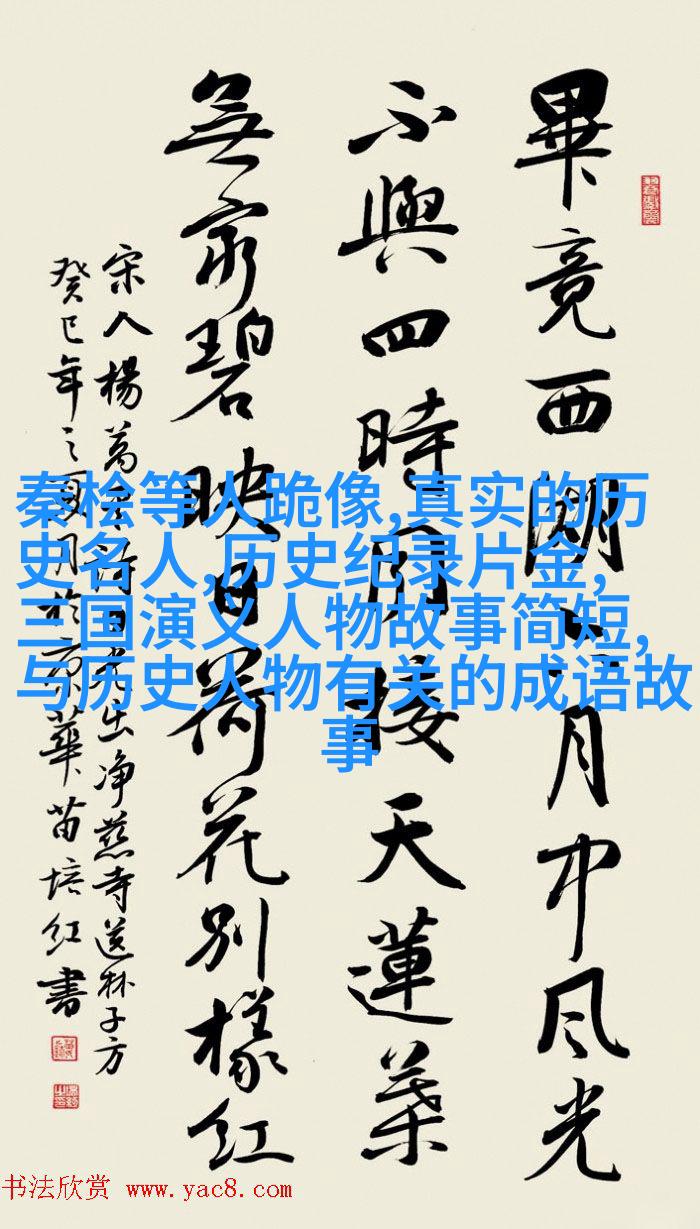 畢竟西湖六月中風光
不與四時同接天蓮葉
無窮碧映日荷花別樣紅
宋人楊萬里詩曉出净慈寺送林子方
癸巳年之夏月於京華苗培红書
秦桧等人跪像,真实的历
史名人,历史纪录片金,
三国演义人物故事简短,
与历史人物有关的成语故
事
书法欣赏 www.yac8.com